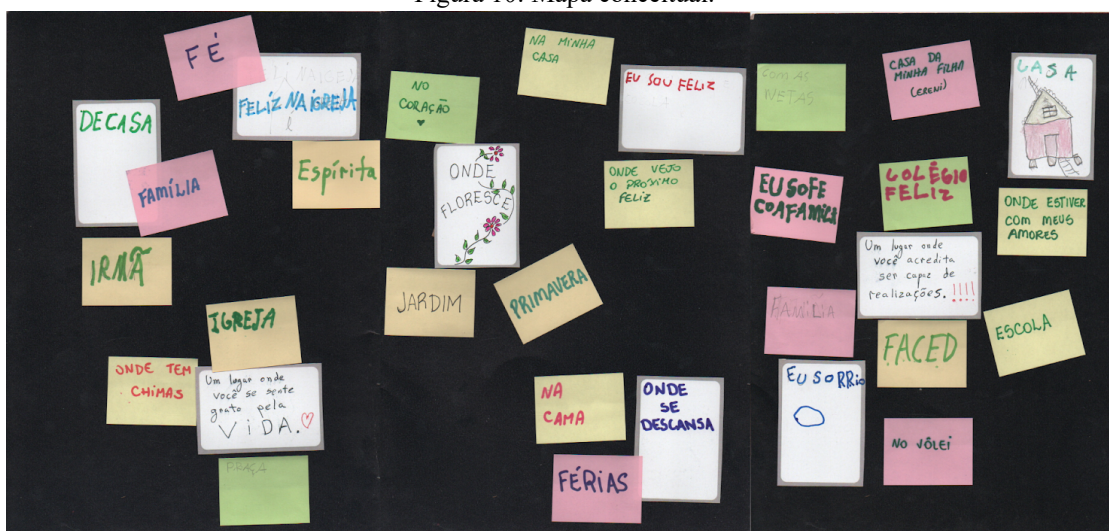 Figura 10: Mapa conceitual.
FÉ
FELIZ NA IGREJA
DE CASA
FAMÍLIA
Espírita
IRMÃ
IGREJA
ONDE TEM
CHIMAS
Um lugar onde
você se sente
grato pela
VIDA.
PRAÇA
NO
CORAÇÃO
NA MINHA
CASA
EU SOU FELIZ
ONDE
FLORESCE
ONDE VEJO
O PROXIMO
FELIZ
JARDIM
PRIMAVERA
NA
CAMA
ONDE
SE
DESCANSA
FÉRIAS
COM AS
NETAS
CASA DA
MINHA FILHA
(ERENI)
CASA
EU SOFE
COAFAMILA
COLÉGIO
FELIZ
ONDE ESTIVER
COM MEUS
AMORES
Um lugar onde
você acredita
ser capaz de
realizações. !!!!
FAMÍLIA
FACED
ESCOLA
EU SORRIO
NO VÔLEI